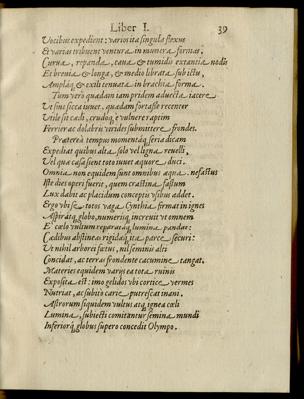 Liber I. 39
Vocibus expedient: varios ita singula flexus
Et varias tribuent ventura in munera formas,
Curua, repanda, caua & tumidis extantia nodis
Et breuia & longa, & medio librata subictu,
Ampláq & exili tenuata in brachia forma.
Tum verò quadam iam pridem aduecta iacere
Vt sius sicca iuuet, quadam forta sse recenter
Vtile sit cædi, crudoq, e vulnere raptim
Ferrier ac dolabris virides submittere frondes.
Prætereà tempus momentáq seria dicam
Expediat quibus alta solo vel ligna reuelli,
Vel qua casa sient toto iuuet æquore duci.
Omnia non equidem sunt omnibus aqua nefastus
Iste dies operi fuerit, quem crastina fastum
Lux dabit ac placidum conceptu visibus addet.
Ergo vbi se totos vaga Cynthia firmat in ignes
Astráq globo, numerisq increuit vt omnem
E' cælo vultum reparatáq lumina pandat:
Cædibus abstineas rigidáq ita parce securi:
Vt nihil arborei fœtus, nil seminis alti
Concidat, ac terras frondente cacumine tangat.
Materies equidem varijs ea tota ruinis
Exposita est: imo gelidos vbi cortice vermes
Nutriat, ac subitò carie putrescat inani.
Astrorum siquidem vultus atq ignea cæli
Lumina, subiecti comitantur semina mundi
Inferiorq globus supero concedit Olympo.